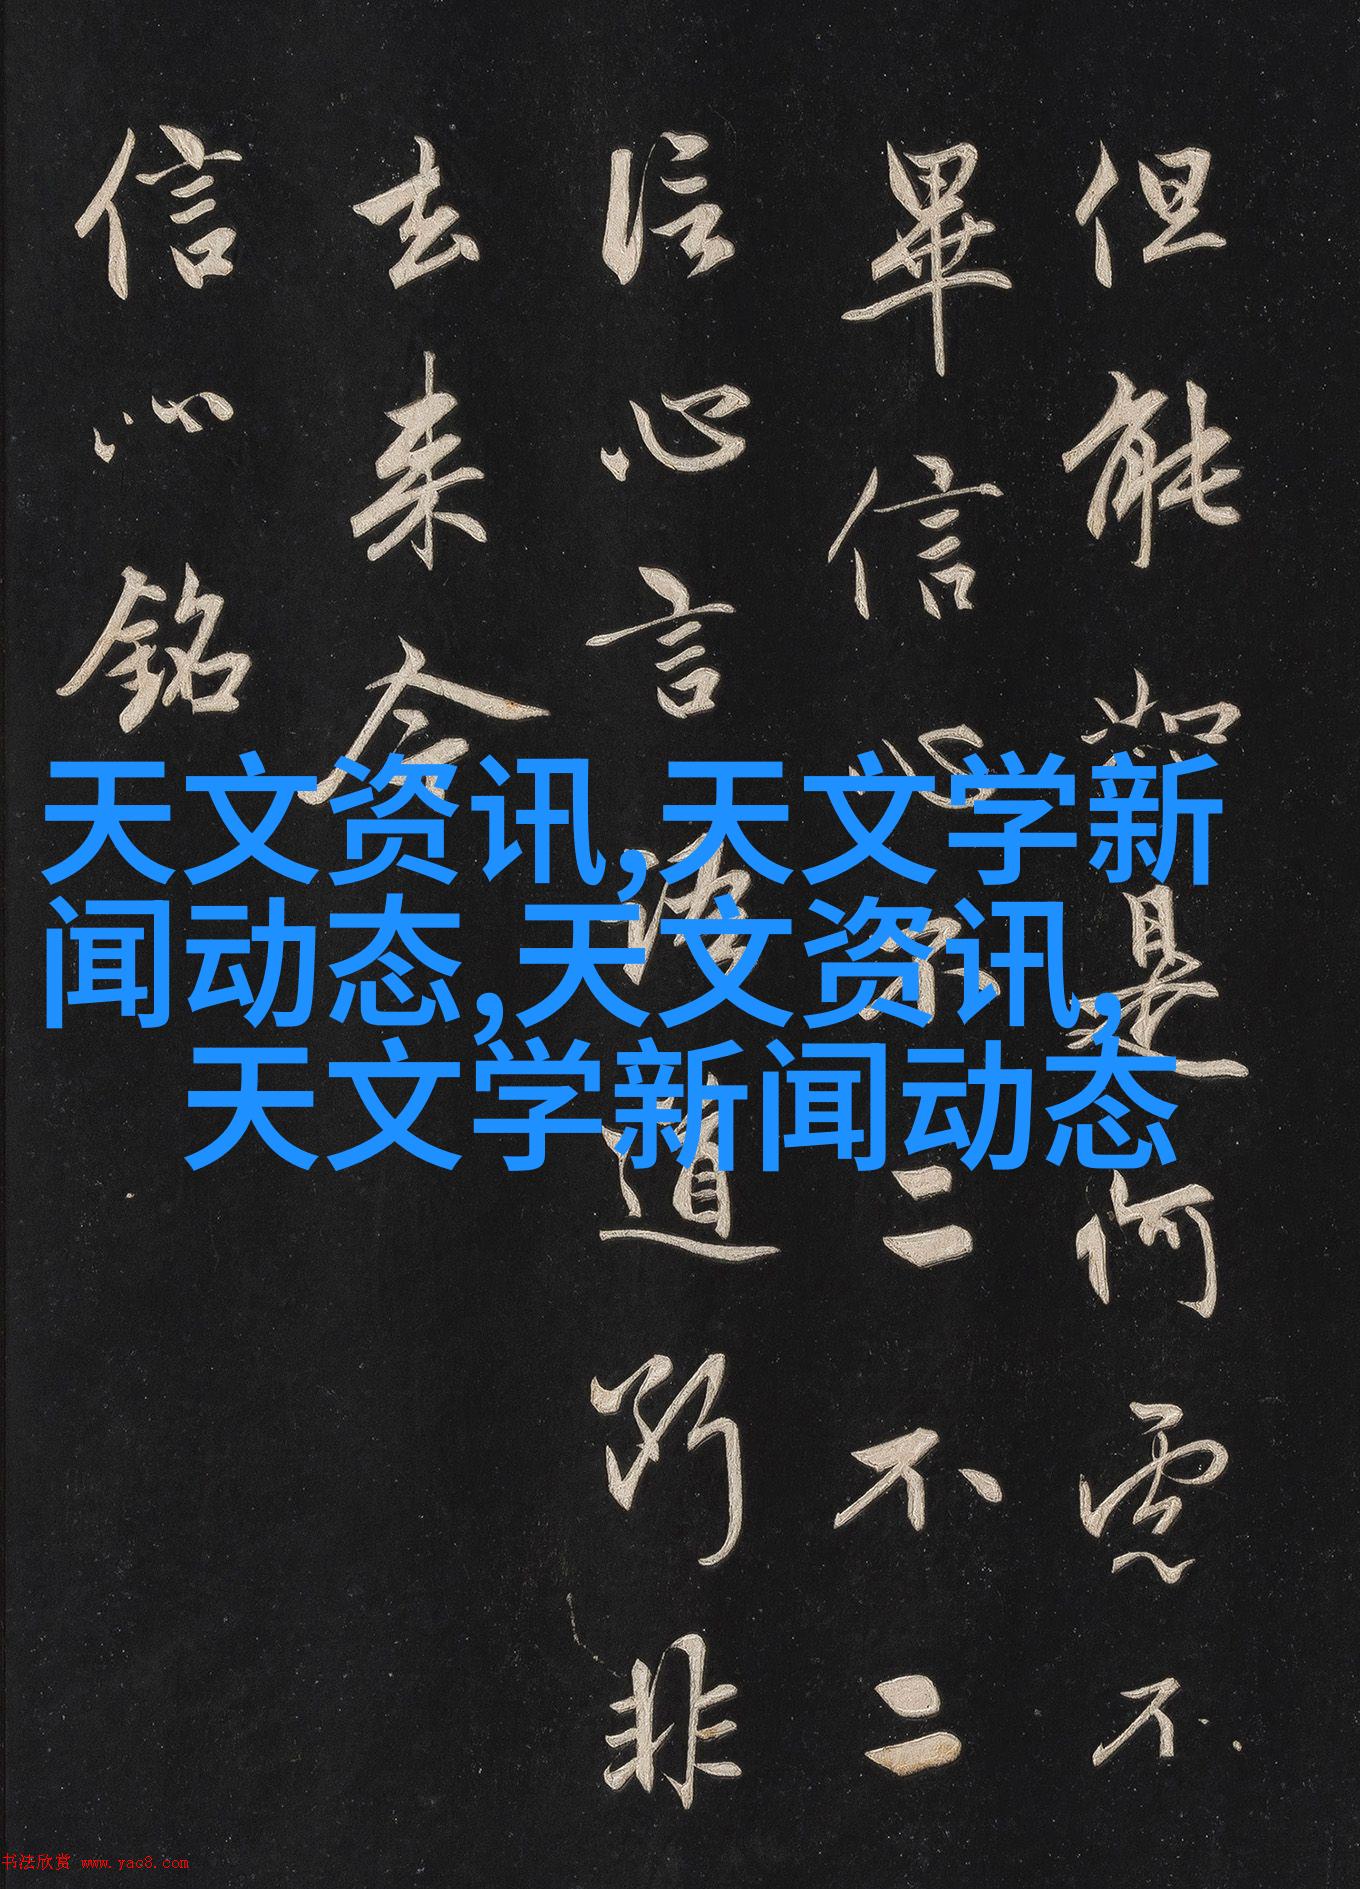 但能如是何慮不
畢信心不二不二
信心言語道断非
去来今
信心銘
天文资讯,天文学新
闻动态,天文资讯,
天文学新闻动态
书法欣赏 www.yac8.com